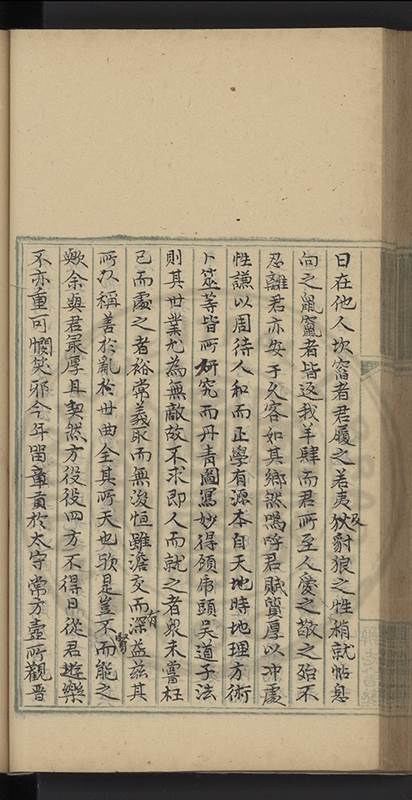 日在他人坎窞者君履之若夷狄及豺狼之性稍就帖息
向之鼠竄者皆返我羊肆而君所至人愛之敬之殆不
忍離君亦安于久客如其鄉然嗚呼君賦質厚以沖處
性謙以周待人和而正學有源本自天地時地理方術
卜筮等皆所研究而丹青圖寫妙得顧虎頭吳道子法
則其世業尤為無敵故不求即人而就之者眾未嘗枉
己而處之者裕常義取而無浚恒雖澹交而深有益茲其
所以稱善於亂於世曲全其所天也歟是豈不而能之
歟余與君最厚且契然方役役四方不得日從君遊樂
不亦重可憫笑邪今年留章貢於太守常方壺所觀晋